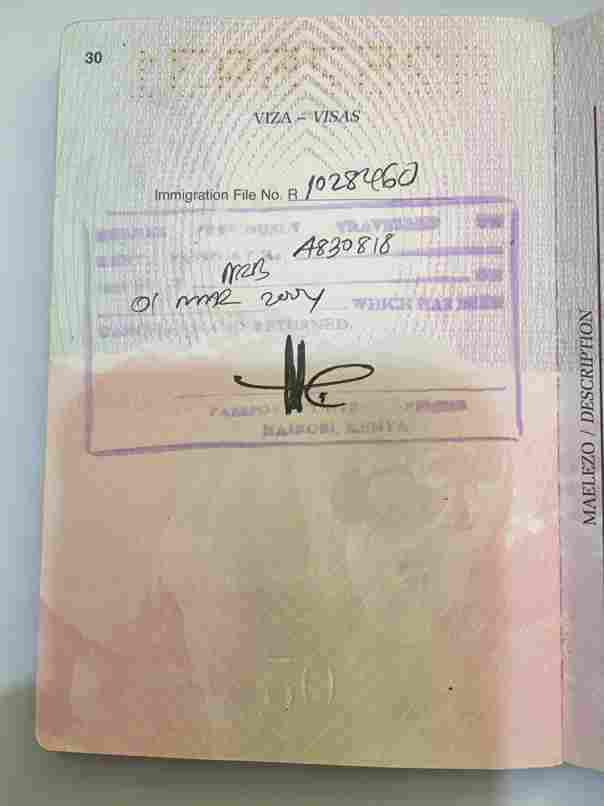 30
VIZA – VISAS
Immigration File No. R 1028460
PREVIOUSLY TRAVELLED ON
A830818
NRB
01 MAR 2004 WHICH HAS BEEN
AND RETURNED
NAIROBI, KENYA
MAELEZO / DESCRIPTION